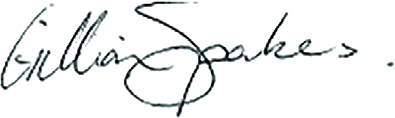 Gillian Spakes.